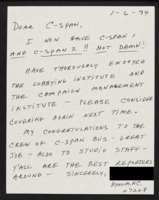 1-6-94
DEAR C-SPAN,
I NOW HAVE C-SPAN 1
AND C-SPAN 2 !! HOT DAMN!
HAVE THOROUGHLY ENJOYED
THE LOBBYING INSTITUTE AND
THE CAMPAIGN MANAGEMENT
INSTITUTE - PLEASE CONSIDER
COVERING AGAIN NEXT TIME.
MY CONGRATULATIONS TO THE
CREW OF C-SPAN BUS - GREAT
JOB - ALSO TO STUDIO STAFF -
Y'ALL ARE THE BEST REPORTERS
AROUND - SINCERELY,